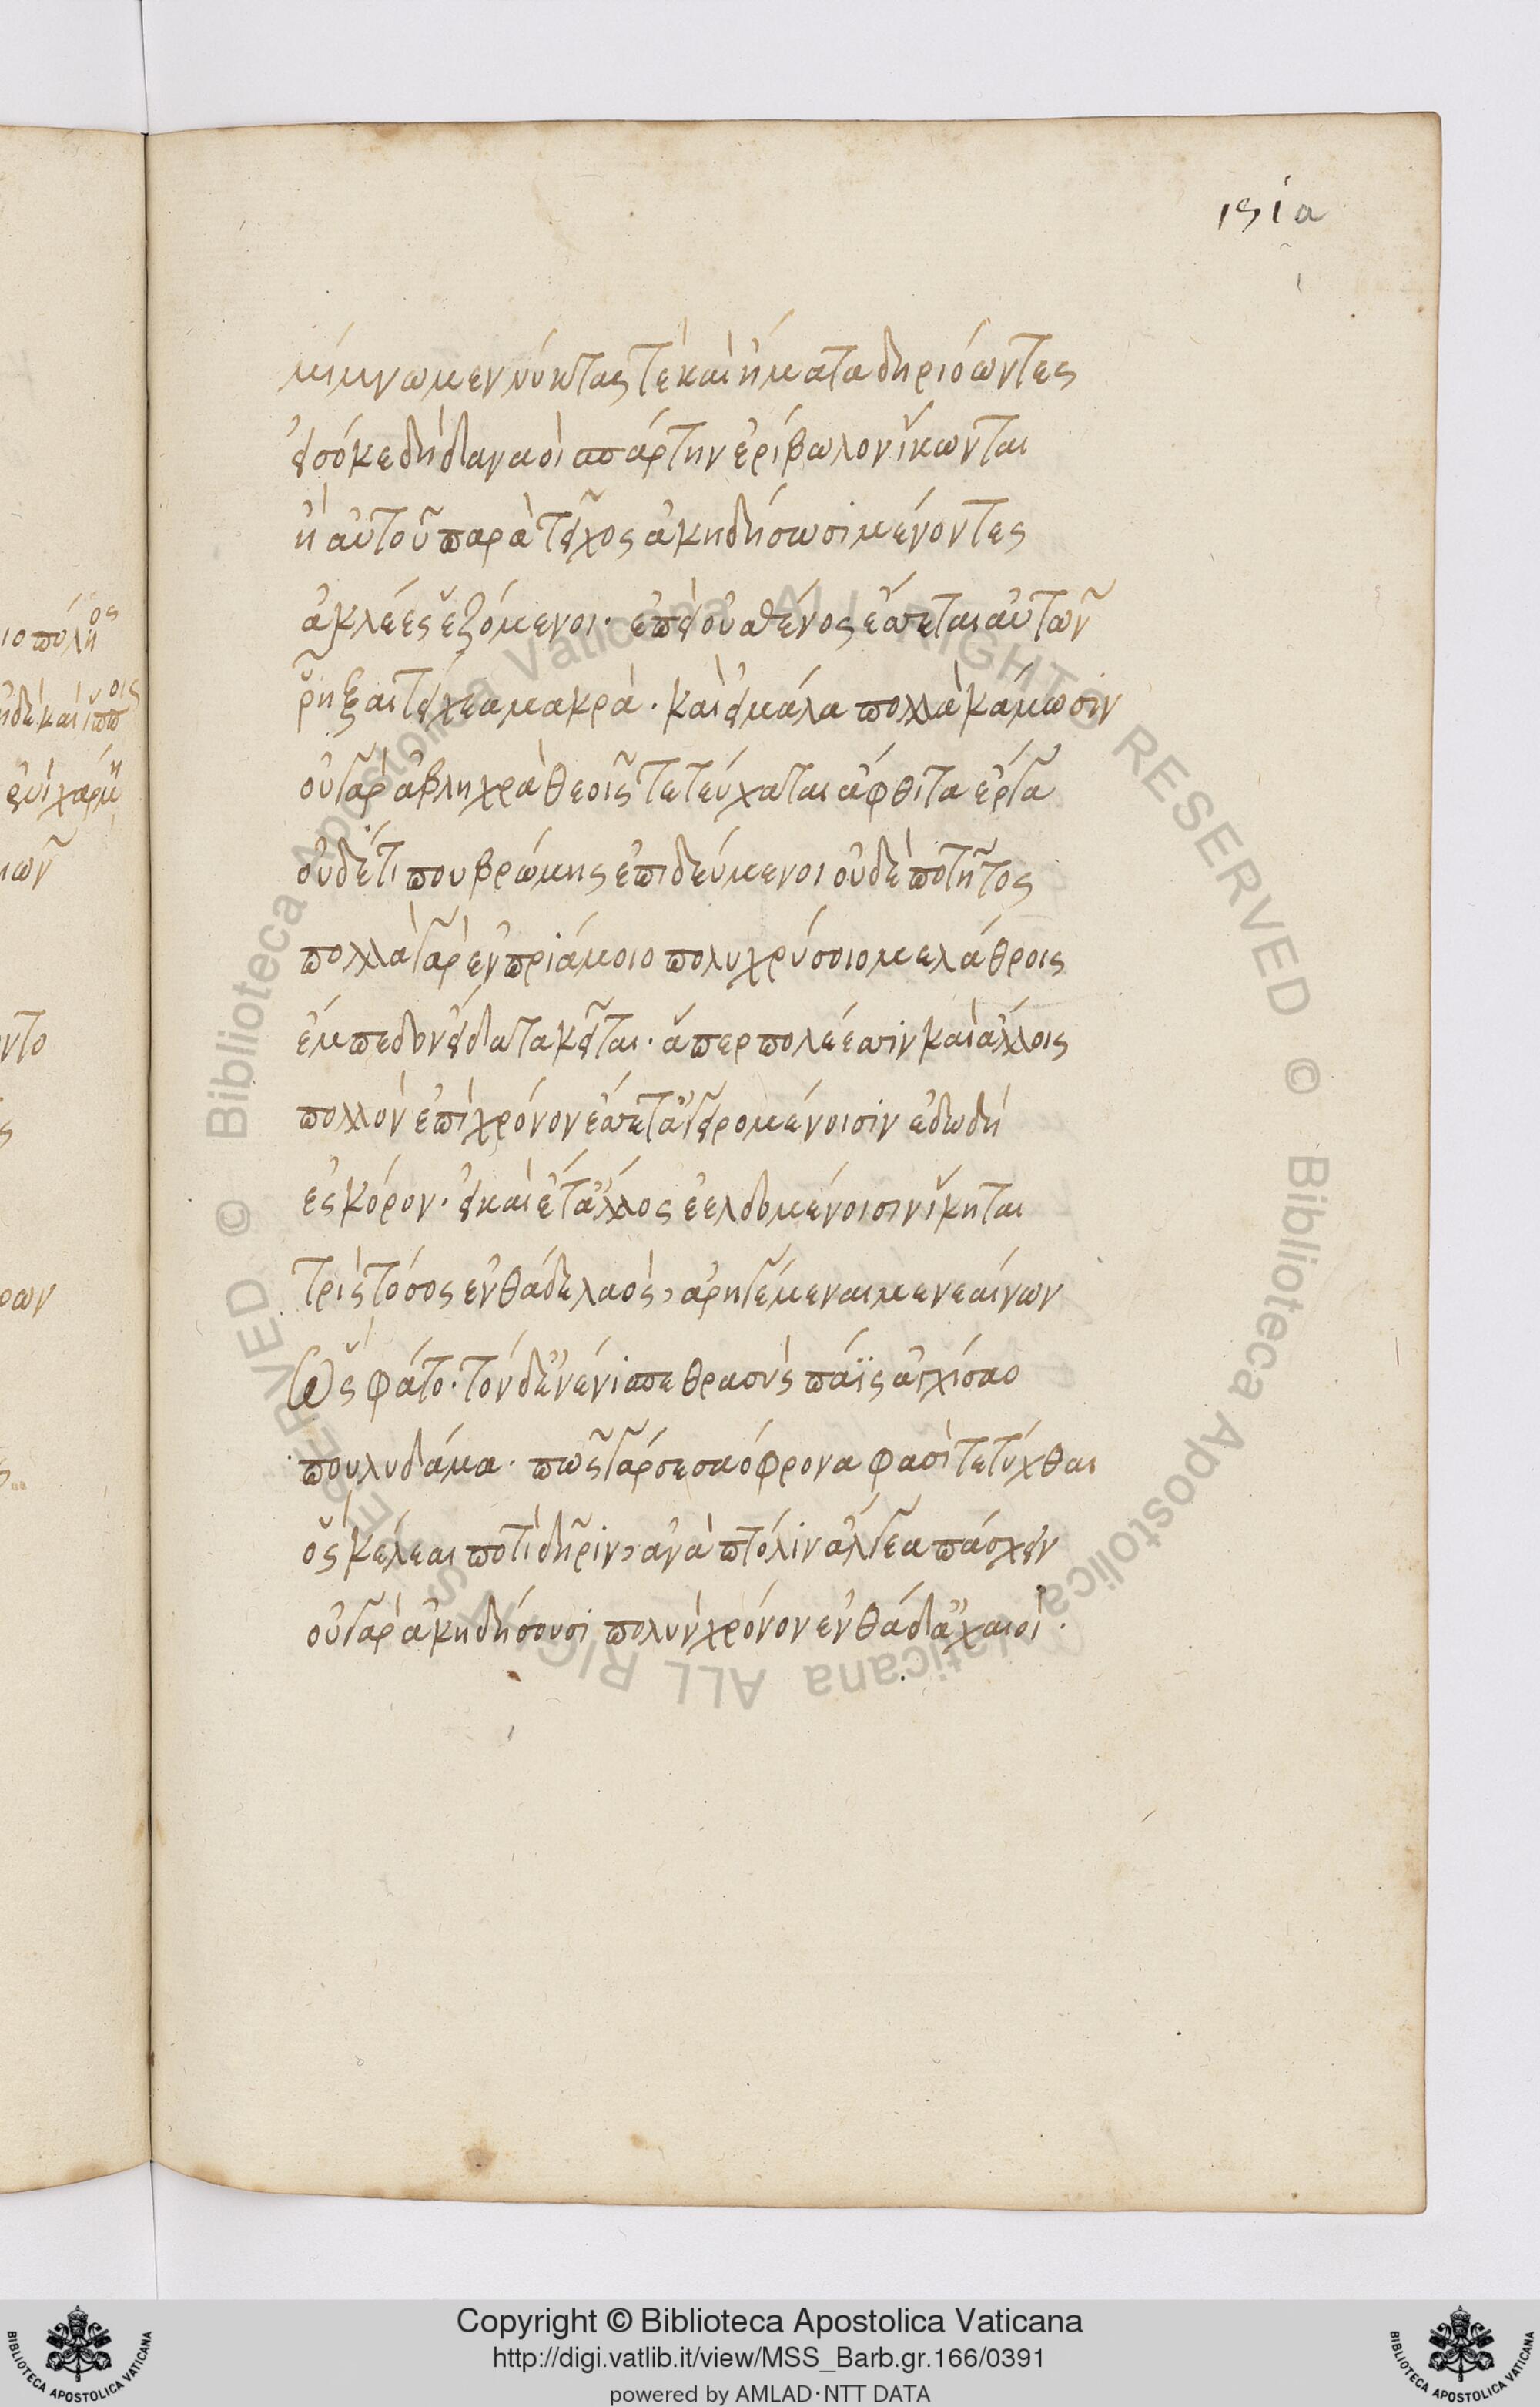 191a
μίμνωμεν νύκτας τὲ καὶ ἤματα δηριόωντες
εἰσόκε δὴ δαναοὶ σπάρτην ἐρίβωλον ἵκωνται
ἢ αὐτοῦ παρὰ τεῖχος ἀκηδήσωσι μένοντες
ἀκλέες ἑζόμενοι. ἐπεὶ οὐ σθένος ἕσπεται αὐτῶν
ῥῆξαι τείχεα μακρὰ. καὶ εἰ μάλα πολλὰ κάμωσιν
οὐ γὰρ ἀβληχρὰ θεοῖς τετεύχαται ἄφθιτα ἔργα
οὐδέ τι που βρώμης ἐπιδεύμενοι οὐδὲ ποτῆτος
πολλὰ γὰρ ἐν πριάμοιο πολυχρύσοιο μελάθροις
ἔμπεδον εἴδατα κεῖται. ἅπερ πολέεσσιν καὶ ἄλλοις
πολλὸν ἐπὶ χρόνον ἔσσετ' ἀγειρομένοισιν ἐδωδὴ
ἐς κόρον. εἰ καὶ ἔτ' ἄλλος ἐελδομένοισιν ἵκηται
τρὶς τόσος ἐνθάδε λαὸς, ἀρηγέμεναι μενεαίνων
Ὣς φάτο. τὸν δ' ἐνένισπε θρασὺς πάϊς ἀγχίσαο
πουλυδάμα. πῶς γάρ σε σαόφρονα φασὶ τετύχθαι
ὃς κέλεαι ποτὶ δῆριν, ἀνὰ πτόλιν ἄλγεα πάσχειν
οὐ γὰρ ἀκηδήσουσι πολὺν χρόνον ἐνθάδ' ἀχαιοὶ.
Copyright © Biblioteca Apostolica Vaticana
http://digi.vatlib.it/view/MSS_Barb.gr.166/0391
powered by AMLAD·NTT DATA